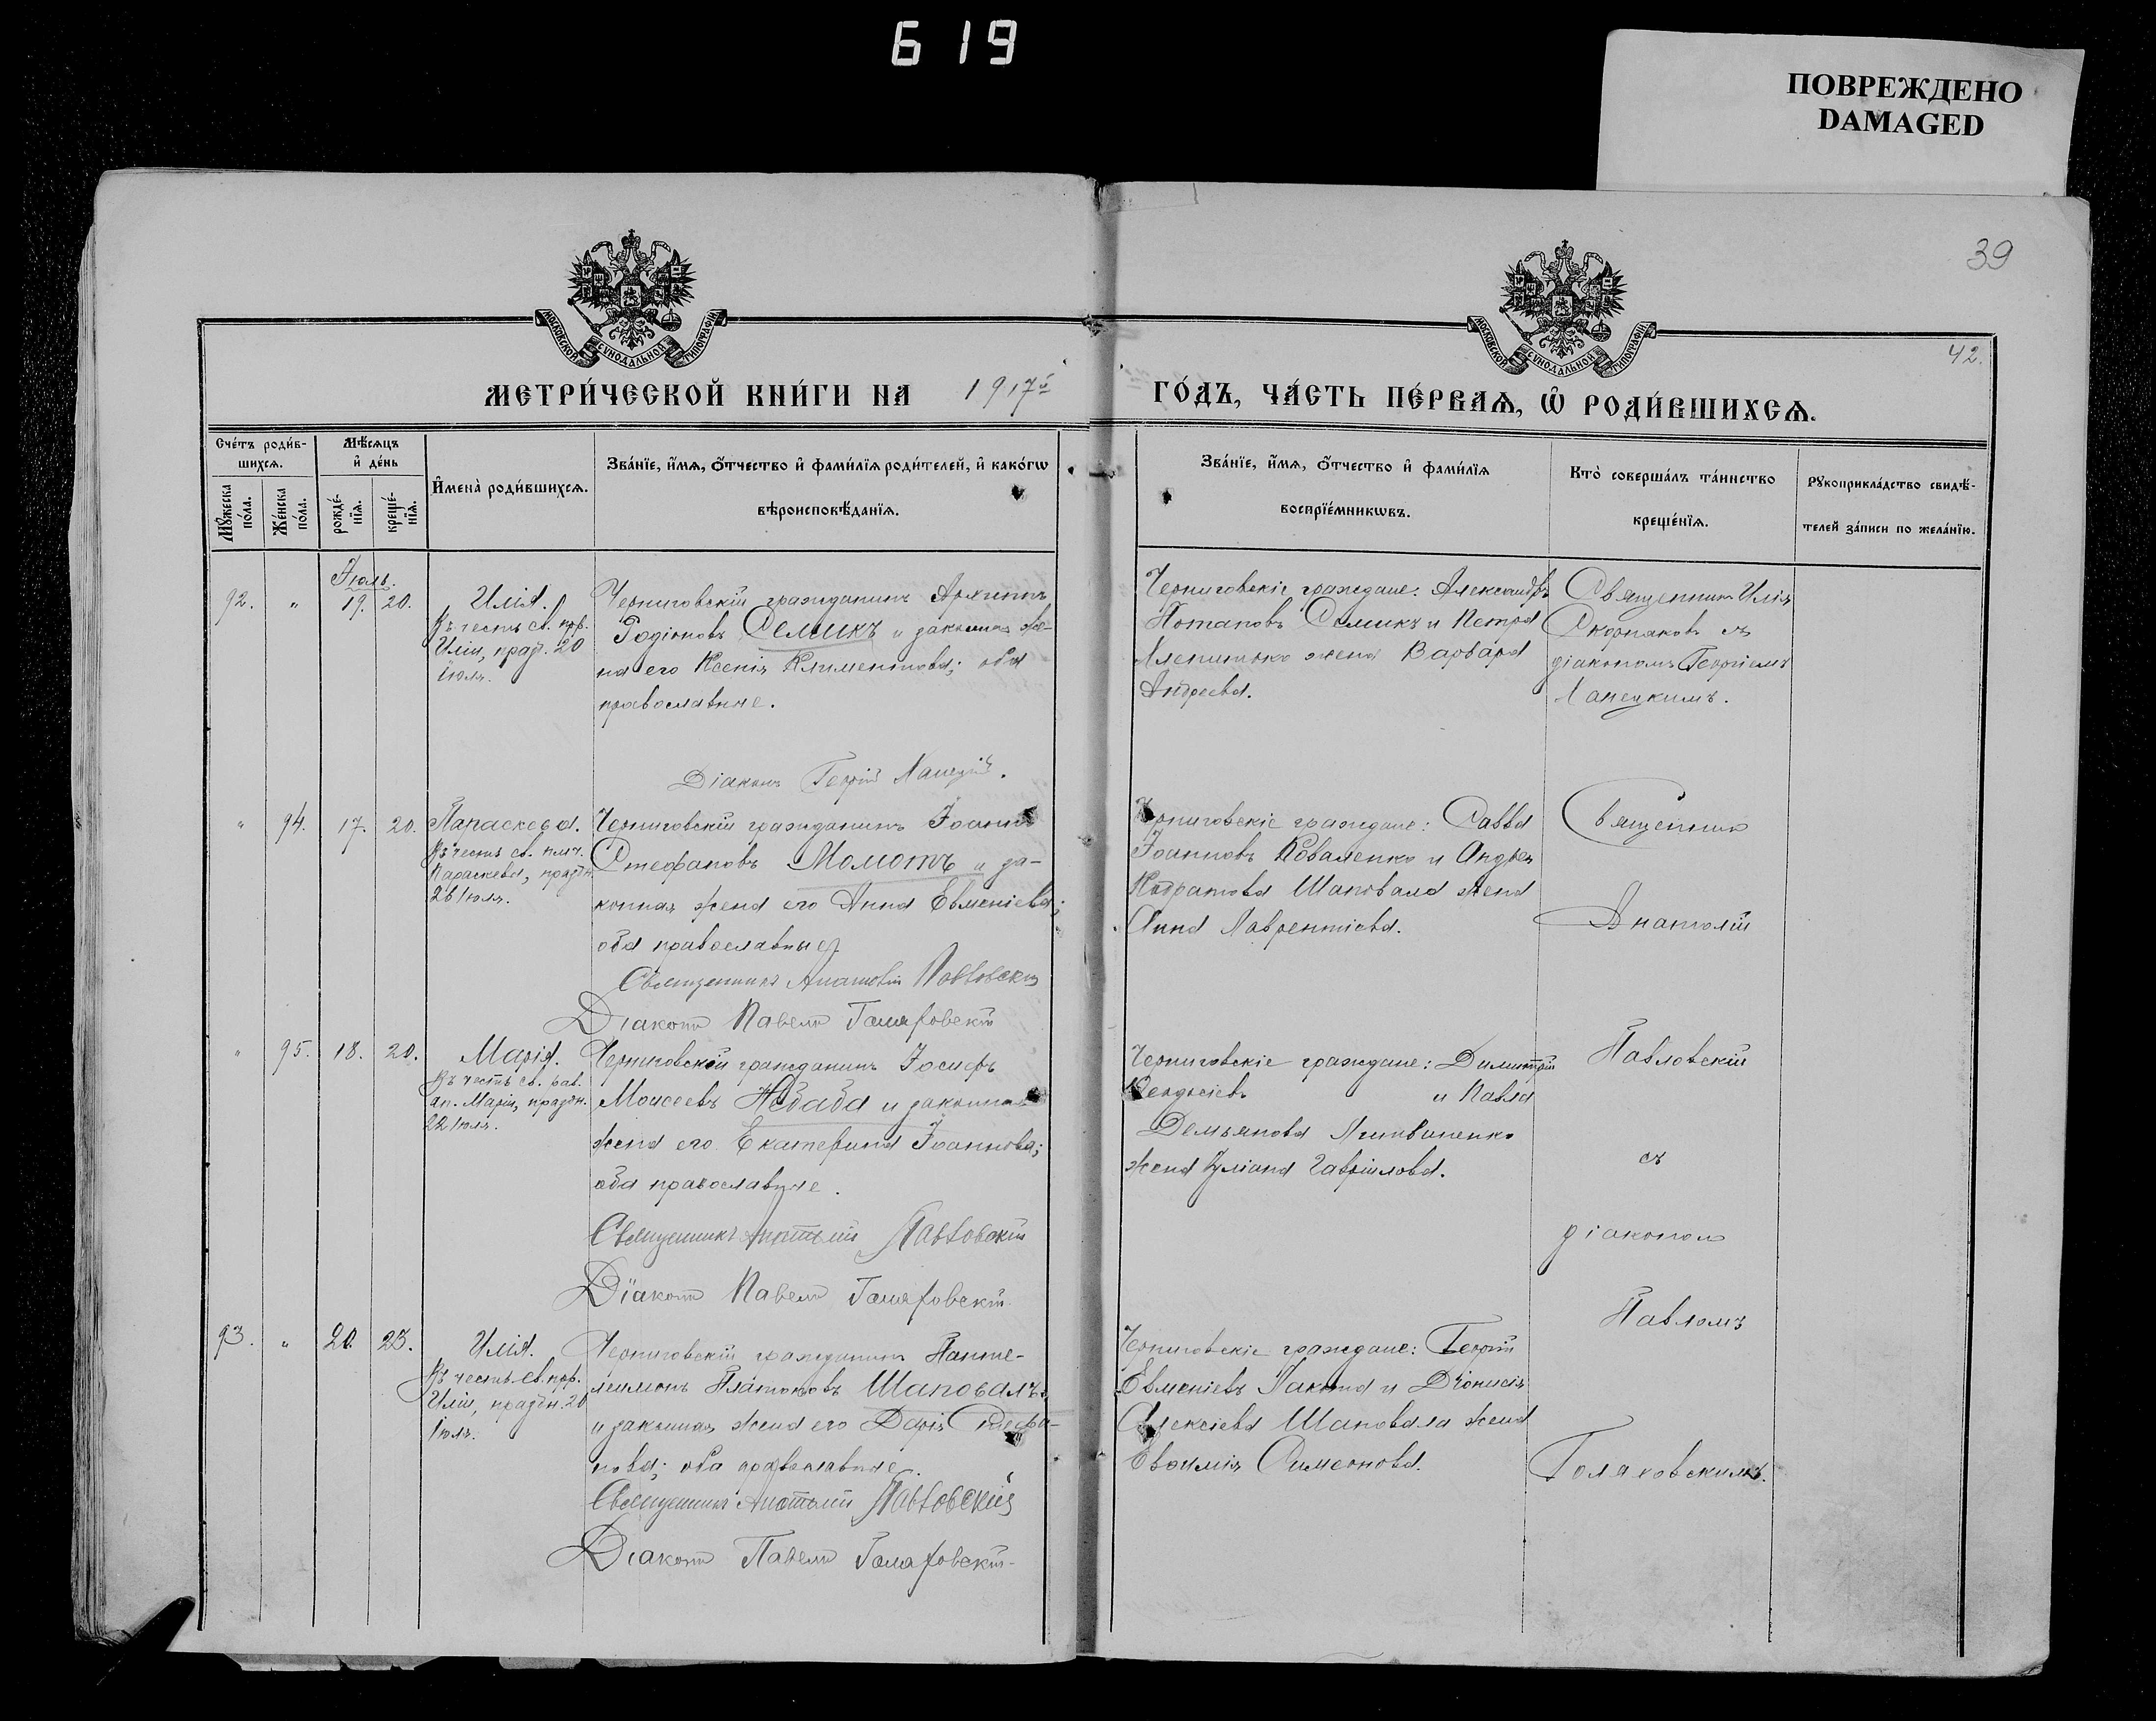 619
ПОВРЕЖДЕНО
DAMAGED
39
42.
МОСКОВСКОЙ СУНОДАЛЬНОЙ ТИПОГРАФІИ
МОСКОВСКОЙ СУНОДАЛЬНОЙ ТИПОГРАФІИ
МЕТРИ́ЧЕСКОЙ КНИ́ГИ НА 1917й
ГО́ДЪ, ЧА́СТЬ ПЕ́РВАѦ, Ѡ РОДИ́ВШИХСѦ.
Сче́тъ роди́в-
шихсѧ.
Мꙋ́жеска по́ла.
Же́нска по́ла.
Мѣ́сѧцъ
и҆ де́нь
рожде́-
нїѧ.
креще́-
нїѧ.
И҆мена̀ роди́вшихсѧ.
Зва́нїе, и҆́мѧ, ѻ҆́тчество и҆ фами́лїѧ роди́телей, и҆ како́гѡ
вѣроисповѣ́данїѧ.
Зва́нїе, и҆́мѧ, ѻ҆́тчество и҆ фами́лїѧ
воспрїе́мникѡвъ.
Кто̀ соверша́лъ та́инство
креще́нїѧ.
Рꙋкоприкла́дство свидѣ́-
телей за́писи по жела́нїю.
Іюль.
92. " 19. 20. Илія.
Въ честь св. пр.
Иліи, празд. 20
іюля.
Черниговскій гражданинъ Архиппъ
Родіоновъ Семикъ и законная же-
на его Ксенія Климентова; оба
православные.
Діаконъ Георгій Лапецкій.
Черниговскіе граждане: Александръ
Потаповъ Семикъ и Петра
жена Варвара
Андреева.
Священникъ Илія
съ
діакономъ Георгіемъ
Лапецкимъ.
" 94. 17. 20. Параскева.
Въ честь св. пмч.
Параскевы, праздн.
26 Іюля.
Черниговскій гражданинъ Іоаннъ
Стефановъ Момотъ и за-
конная жена его Анна Евменіева;
оба православные
Священникъ Анатолій Павловскій
Діаконъ Павелъ Голяховскій
Черниговскіе граждане: Савва
Іоанновъ Коваленко и Андрея
Кодратова Шаповала жена
Анна Лаврентіева.
Священникъ
Анатолій
Павловскій
съ
діакономъ
Павломъ
Голяховскимъ.
" 95. 18. 20. Марія.
Въ честь св. рав.
ап. Маріи, праздн.
22 Іюля.
Черниговскій гражданинъ Іосифъ
Моисеевъ Жабада и законная
жена его Екатерина Іоаннова;
оба православные.
Священникъ Анатолій Павловскій
Діаконъ Павелъ Голяховскій
Черниговскіе граждане: Димитрій
и Павла
Демьянова Литвиненко
жена Гавріилова.
93. " 20. 23. Илія.
Въ честь св. пр.
Иліи, праздн. 20
Іюля.
Черниговскій гражданинъ Панте-
леимонъ Платоновъ Шаповалъ
и законная жена его Дарія Стефа-
нова; оба православные.
Священникъ Анатолій Павловскій
Діаконъ Павелъ Голяховскій
Черниговскіе граждане: Георгій
Евменіевъ и Діонисія
Алексіева Шаповала жена
Евфимія Симеонова.